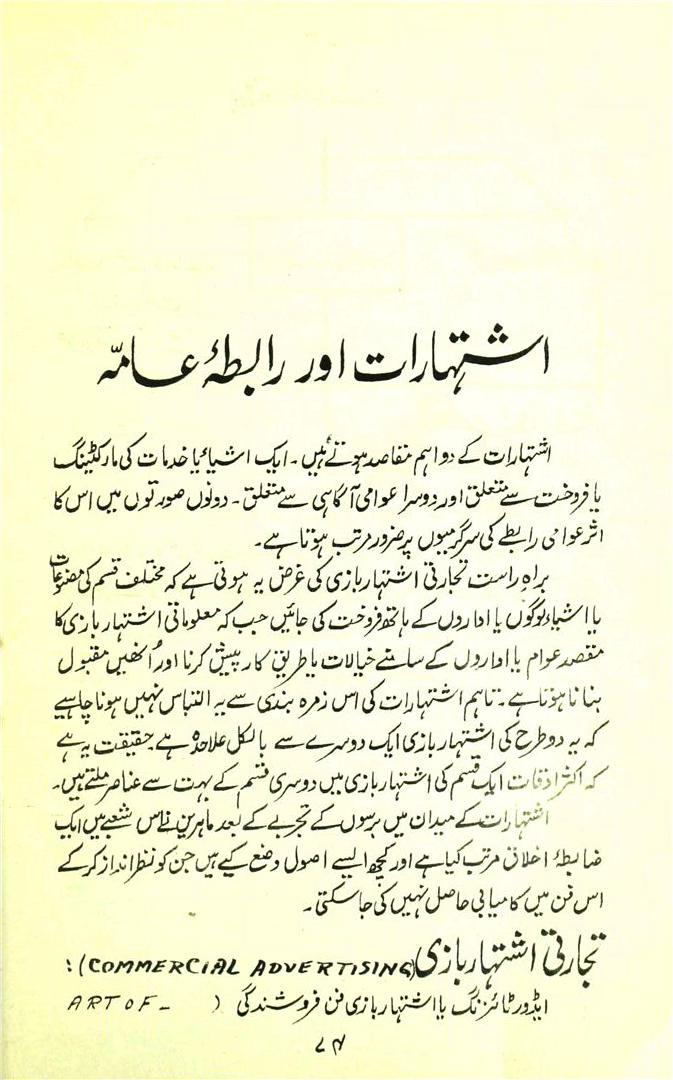 اشتہارات اور رابطۂ عامّہ
اشتہارات کے دو اہم مقاصد ہوتے ہیں۔ ایک اشیاء یا خدمات کی مارکٹینگ
یا فروخت سے متعلق اور دوسرا عوامی آگاہی سے متعلق۔ دونوں صورتوں میں اس کا
اثر عوامی رابطے کی سرگرمیوں پر ضرور مرتب ہوتا ہے۔
براہِ راست تجارتی اشتہار بازی کی غرض یہ ہوتی ہے کہ مختلف قسم کی مصنوعات
یا اشیاء لوگوں یا اداروں کے ہاتھ فروخت کی جائیں جب کہ معلوماتی اشتہار بازی کا
مقصد عوام یا اداروں کے سامنے خیالات یا طریقِ کار پیش کرنا اور اُنھیں مقبول
بنانا ہوتا ہے۔ تاہم اشتہارات کی اس زمرہ بندی سے یہ التباس نہیں ہونا چاہیے
کہ یہ دو طرح کی اشتہار بازی ایک دوسرے سے بالکل علاحدہ ہے۔ حقیقت یہ ہے
کہ اکثر اوقات ایک قسم کی اشتہار بازی میں دوسری قسم کے بہت سے عناصر ملتے ہیں۔
اشتہارات کے میدان میں برسوں کے تجربے کے بعد ماہرین نے اس شعبے میں ایک
ضابطۂ اخلاق مرتب کیا ہے اور کچھ ایسے اصول وضع کیے ہیں جن کو نظر انداز کر کے
اس فن میں کامیابی حاصل نہیں کی جاسکتی۔
تجارتی اشتہار بازی (COMMERCIAL ADVERTISING):
ایڈورٹائزنگ یا اشتہار بازی فن فروشندگی ( ART OF -
۷۴